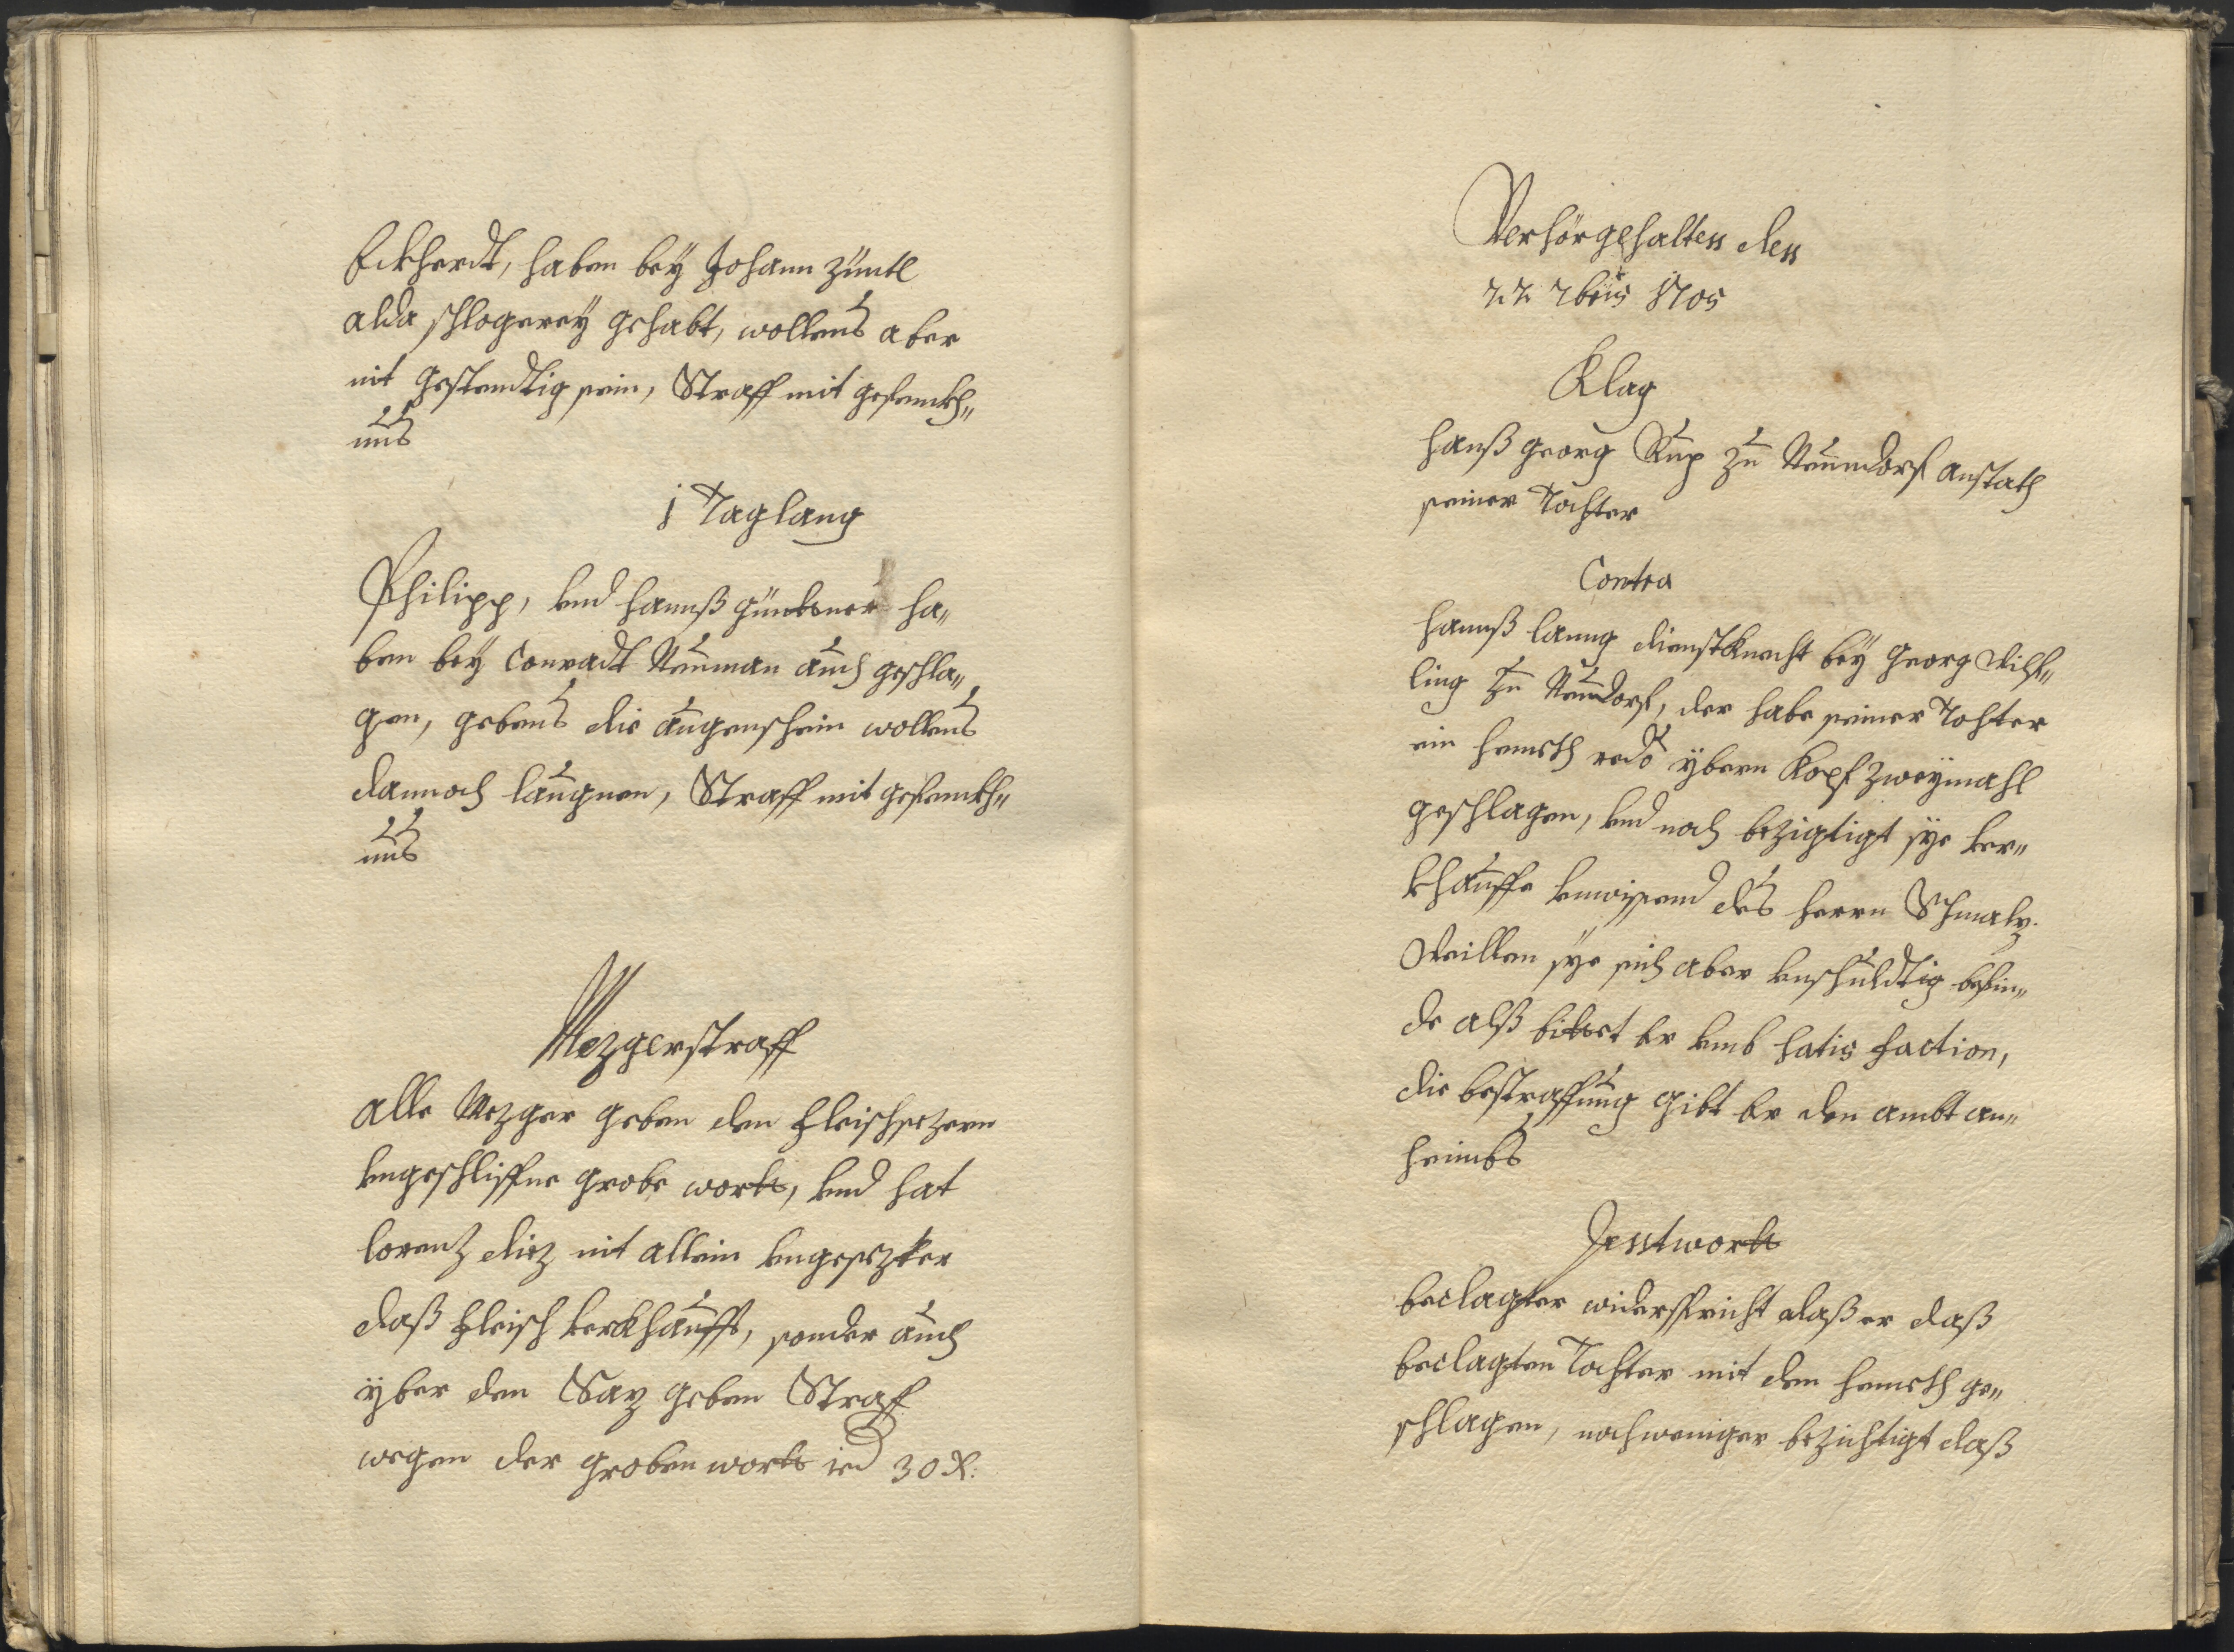 Eckherdt, haben bey Johann Züntl
alda schlogerey gehabt, wollens aber
nit gestendtig sein, Straff mit gefenckh„
nus
1 Tag lang
Philipp, vnd Hannß Güntsner ha„
ben bey Conradt Neuman auch geschla„
gen, gebens die augenschein wollens
dannoch laugnen, Straff mit gefenckh„
nus
Mezgerstraff
Alle Mezger geben den Fleischsezern
vngeschliffne grobe wortt, vnd hat
Lorenz Diez nit allein vngesezter
daß Fleisch verckhaufft, sonder auch
yber den Saz geben Straff
wegen der groben wortt ied 30 x:
Verhör gehalten den
22 7bris 1705
Klag
Hanß Georg Rup zu Neundorf anstath
seiner Tochter
Contra
Hannß Lanng dienstknecht bey Georg
ling zu Neundorf, der habe seiner Tochter
ein hemeth redo ybern Kopf zweymahl
geschlagen, vnd noch bezigtigt sye ver„
khauffe vnwissend des Herrn Schmalz.
Weillen sye sich aber vnschuldtig befin„
de alß bittet er vmb satis faction,
die bestraffung gibt er den ambt an„
heimbs
Antwortt
beclagter widerspricht daß er daß
beclagten Tochter mit dem hemeth ge„
schlagen, noch weniger bezichtigt daß